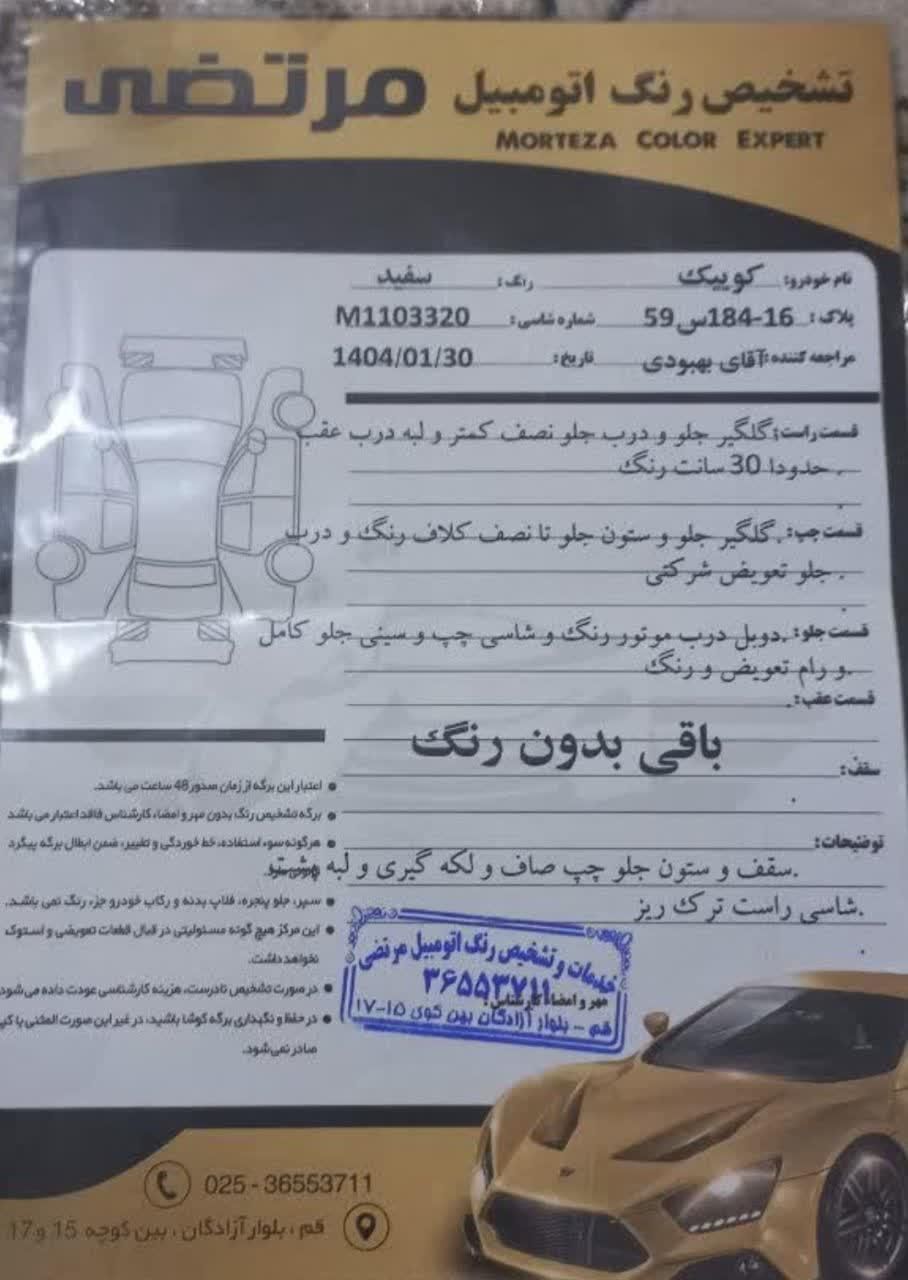 تشخیص رنگ اتومبیل مرتضی
MORTEZA COLOR EXPERT
نام خودرو: کوییک رنگ: سفید
پلاک: 16-184س59 شماره شاسی: M1103320
مراجعه کننده: آقای بهبودی تاریخ: 1404/01/30
قسمت راست: گلگیر جلو و درب جلو نصف کمتر و لبه درب عقب
حدودا 30 سانت رنگ.
قسمت چپ: گلگیر جلو و ستون جلو تا نصف کلاف رنگ و درب
جلو تعویض شرکتی.
قسمت جلو: دوبل درب موتور رنگ و شاسی چپ و سینی جلو کامل
و رام تعویض و رنگ.
قسمت عقب:
باقی بدون رنگ
سقف:
توضیحات:
سقف و ستون جلو چپ صاف و لکه گیری و لبه پشت
شاسی راست ترک ریز.
● اعتبار این برگه از زمان صدور 48 ساعت می باشد.
● برگه تشخیص رنگ بدون مهر و امضاء کارشناس فاقد اعتبار می باشد
● هرگونه سوء استفاده، خط خوردگی و تغییر، ضمن ابطال برگه پیگرد
● سپر، جلو پنجره، فلاپ بدنه و رکاب خودرو جزء رنگ نمی باشد.
● این مرکز هیچ گونه مسئولیتی در قبال قطعات تعویضی و استوک
نخواهد داشت.
● در صورت تشخیص نادرست، هزینه کارشناسی عودت داده می شود
● در حفظ و نگهداری برگه کوشا باشید، در غیر این صورت المثنی یا کپی
صادر نمی شود.
خدمات و تشخیص رنگ اتومبیل مرتضی
۳۶۵۵۳۷۱۱
مهر و امضاء کارشناس:
قم - بلوار آزادگان بین کوی ۱۵-۱۷
025 - 36553711
قم، بلوار آزادگان، بین کوچه 15 و 17